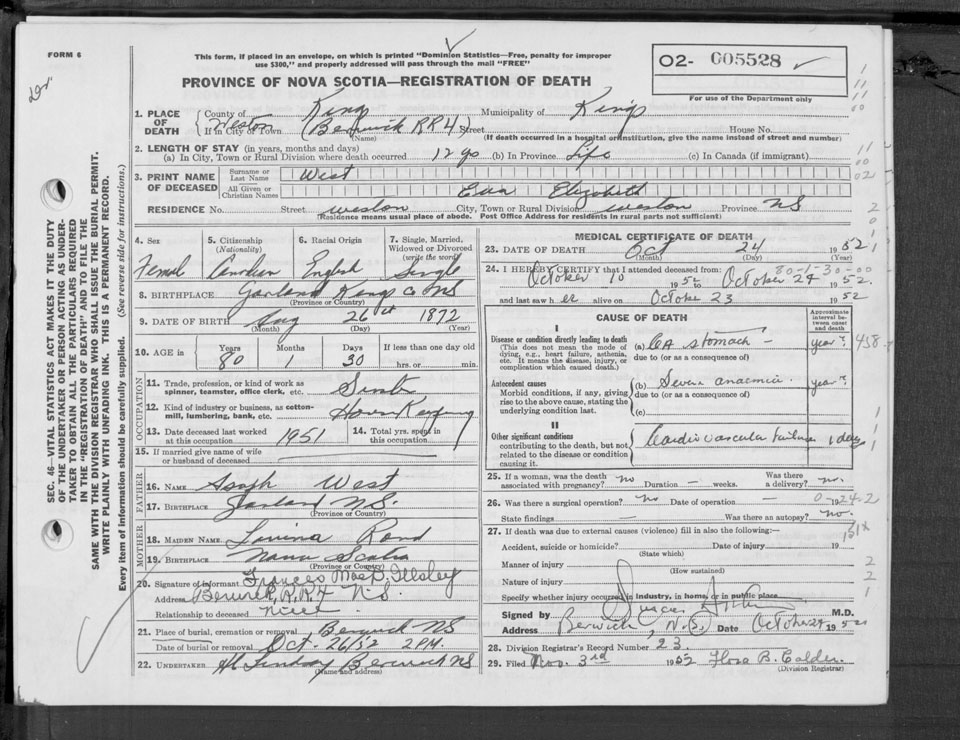 FORM 6
This form, if placed in an envelope, on which is printed "Dominion Statistics—Free, penalty for improper
use $300," and properly addressed will pass through the mail "FREE"
PROVINCE OF NOVA SCOTIA—REGISTRATION OF DEATH
O2- 005528
For use of the Department only
1. PLACE OF DEATH { County of Kings Municipality of Kings
If in City or Town Weston (Berwick RR 4) Street House No.
(Name) (If death occurred in a hospital or institution, give the name instead of street and number)
2. LENGTH OF STAY (in years, months and days)
(a) In City, Town or Rural Division where death occurred 12 yo (b) In Province Life (c) In Canada (if immigrant)
3. PRINT NAME OF DECEASED { Surname or Last Name West
All Given or Christian Names Eva Elizabeth
RESIDENCE No. Street weston City, Town or Rural Division weston Province NS
(Residence means usual place of abode. Post Office Address for residents in rural parts not sufficient)
SEC. 46—VITAL STATISTICS ACT MAKES IT THE DUTY
OF THE UNDERTAKER OR PERSON ACTING AS UNDER-
TAKER TO OBTAIN ALL THE PARTICULARS REQUIRED
IN THE "REGISTRATION OF DEATH" AND TO FILE THE
SAME WITH THE DIVISION REGISTRAR WHO SHALL ISSUE THE BURIAL PERMIT.
WRITE PLAINLY WITH UNFADING INK. THIS IS A PERMANENT RECORD.
Every item of information should be carefully supplied. (See reverse side for instructions.)
4. Sex 5. Citizenship (Nationality) 6. Racial Origin 7. Single, Married, Widowed or Divorced (write the word)
Female Canadian English Single
8. BIRTHPLACE Garland Kings Co NS
(Province or Country)
9. DATE OF BIRTH Aug 26 1872
(Month) (Day) (Year)
10. AGE in { Years Months Days If less than one day old
80 1 30 hrs. or min.
OCCUPATION
11. Trade, profession, or kind of work as spinner, teamster, office clerk, etc.
12. Kind of industry or business, as cotton-mill, lumbering, bank, etc. House Keeping
13. Date deceased last worked at this occupation 1951 14. Total yrs. spent in this occupation
15. If married give name of wife or husband of deceased
FATHER
16. NAME West
17. BIRTHPLACE Garland N.S.
(Province or Country)
MOTHER
18. MAIDEN NAME Lavina Rand
19. BIRTHPLACE Nova Scotia
(Province or Country)
20. Signature of informant Frances Mae B. Illsley
Address Berwick, R.R.4 N.S.
Relationship to deceased niece
21. Place of burial, cremation or removal Berwick NS
Date of burial or removal Oct. 26/52 2 PM.
22. UNDERTAKER Lindsay Berwick NS
(Name and address)
MEDICAL CERTIFICATE OF DEATH
23. DATE OF DEATH Oct 24 1952
(Month) (Day)
80-1-30-00
24. I HEREBY CERTIFY that I attended deceased from:
October 10 1952 to October 24 1952.
and last saw her alive on October 23 1952
CAUSE OF DEATH
Approximate interval between onset and death
I
Disease or condition directly leading to death (a) Ca stomach – year ? 458
(This does not mean the mode of dying, e.g., heart failure, asthenia, etc. It means the disease, injury, or complication which caused death.)
due to (or as a consequence of)
Antecedent causes (b) Severe anaemia year ?
Morbid conditions, if any, giving rise to the above cause, stating the underlying condition last.
due to (or as a consequence of)
(c)
II
Other significant conditions Cardio vascular failure days
contributing to the death, but not related to the disease or condition causing it.
25. If a woman, was the death associated with pregnancy? no Duration — weeks. Was there a delivery? no.
26. Was there a surgical operation? no Date of operation —
State findings — Was there an autopsy? no.
27. If death was due to external causes (violence) fill in also the following:—
Accident, suicide or homicide? Date of injury 19
(State which)
Manner of injury
(How sustained)
Nature of injury
Specify whether injury occurred in industry, in home, or in public place
Signed by M.D.
Address Berwick, N.S. Date October 24 1952
28. Division Registrar's Record Number 23.
29. Filed Nov. 3rd 1952 Flora B. Calder.
(Division Registrar)